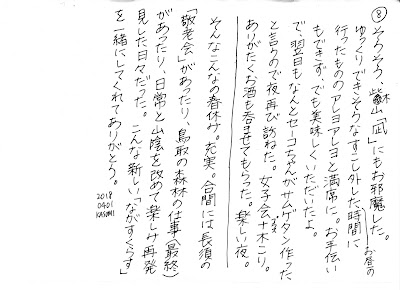 ⑧そろそろ、紫山「凪」にもお邪魔した。
お昼の
ゆっくりできそうなすこし外した時間に
行ったもののアレヨアレヨと満席に。お手伝い
もできず、でも美味しくいただいたよ。
で、翌日もなんとセーコちゃんがサムゲタン作った
と言うので夜再び訪ねた。女子会+木こり。
ありがたくお酒も呑ませてもらった。楽しい夜。
そんなこんなの春休み。充実。合間には長須の
「敬老会」があったり、鳥取の森林の仕事(最終)
があったり、日常と山陰を改めて楽しみ再発
見した日々だった。こんな新しい「ながすくらす」
を一緒にしてくれてありがとう。
2018
0401
KASUMI